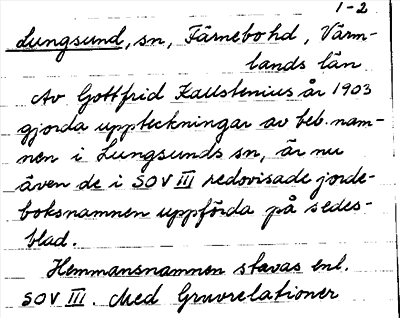 1-2
Lungsund, sn, Färnebo hd, Värm-
lands län
Av Gottfrid Kallstenius år 1903
gjorda uppteckningar av beb.nam-
nen i Lungsunds sn, är nu
även de i SOV III redovisade jorde-
boksnamnen uppförda på sedes-
blad.
Hemmansnamnen stavas enl.
SOV III. Med Gruvrelationer